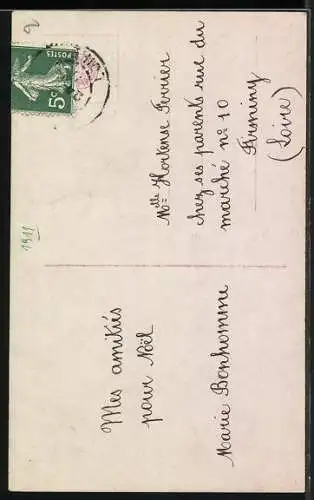 Mes amitiés
pour Noël
Marie Bonhomme
Melle Hortense Ferrier
chez ses parents rue du
marché no 10
Firminy
(Loire)
1911
POSTES
5c